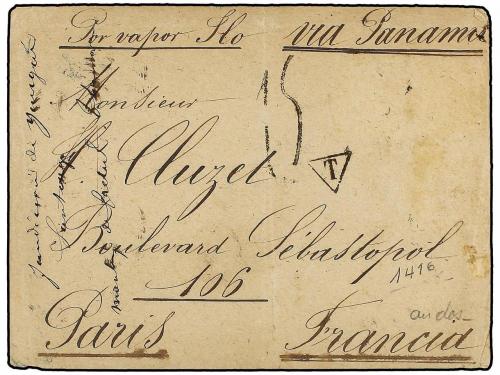 Por vapor Slo via Panama
Monsieur
15
Cluzel
T
Boulevard Sébastopol
106
1416
Paris Francia
au dos
de